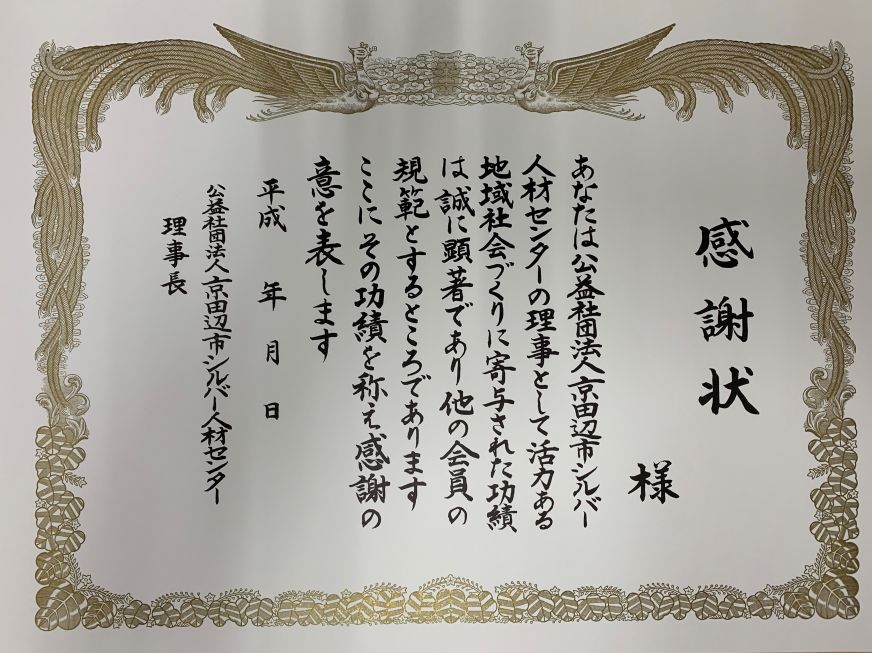 感謝状
様
あなたは公益社団法人京田辺市シルバー
人材センターの理事として活力ある
地域社会づくりに寄与された功績
は誠に顕著であり他の会員の
規範とするところであります
ここにその功績を称え感謝の
意を表します
平成 年 月 日
公益社団法人京田辺市シルバー人材センター
理事長